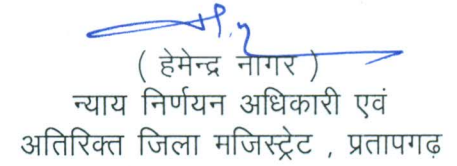 ( हेमेन्द्र नागर )
न्याय निर्णयन अधिकारी एवं
अतिरिक्त जिला मजिस्ट्रेट , प्रतापगढ़